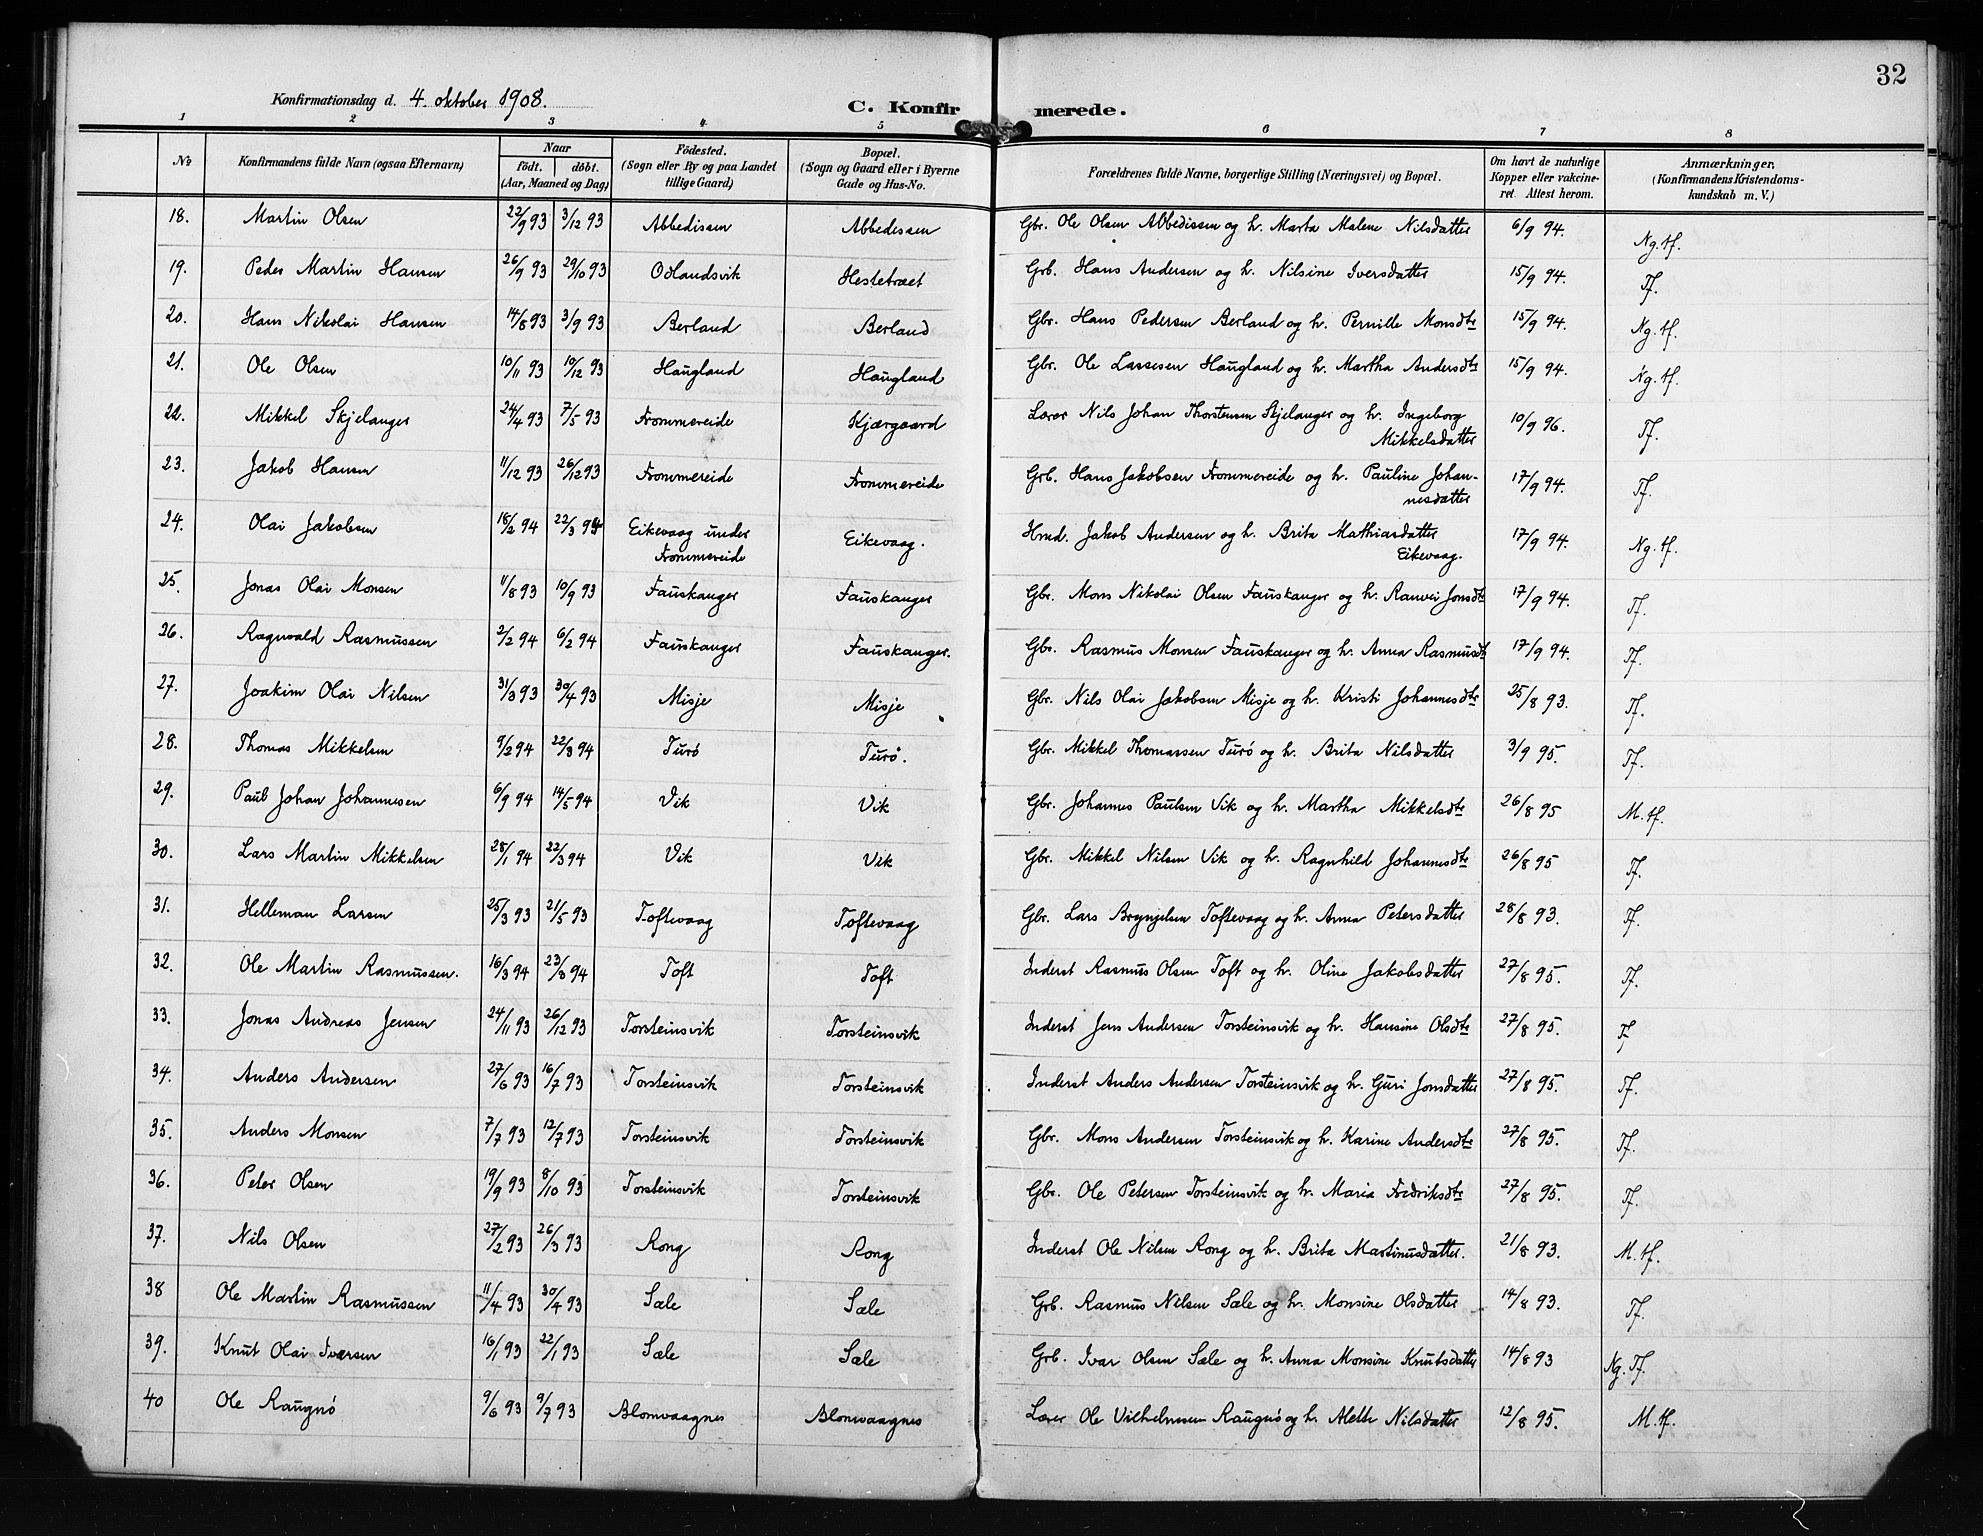 32
Konfirmationsdag d. 4. oktober 1908.
C. Konfirmerede.
1 2 3 4 5 6 7 8
No
Konfirmandens fulde Navn (ogsaa Efternavn)
Naar
født. døbt.
(Aar, Maaned og Dag)
Födested.
(Sogn eller By og paa Landet
tillige Gaard)
Bopæl.
(Sogn og Gaard eller i Byerne
Gade og Hus-No.
Forældrenes fulde Navne, borgerlige Stilling (Næringsvei) og Bopæl.
Om havt de naturlige
Kopper eller vakcine-
ret. Attest herom.
Anmærkninger,
(Konfirmandens Kristendoms-
kundskab m. V.)
18. Martin Olsen 22/9 93 3/12 93 Abbedissen Abbedissen Gbr. Ole Olsen Abbedissen og h. Marta Malene Nilsdatter 6/9 94. Ng. tf.
19. Peder Martin Hansen 26/9 93 29/10 93 Odlandsvik Hestetræet Grb. Hans Andersen og h. Nilsine Iversdatter 15/9 94. Tf.
20. Hans Nikolai Hansen 14/8 93 3/9 93 Berland Berland Gbr. Hans Pedersen Berland og h. Pernille Monsdtr 15/9 94. Ng. tf.
21. Ole Olsen 10/11 93 10/12 93 Haugland Haugland Gbr. Ole Lassesen Haugland og h. Martha Andersdtr 15/9 94. Ng. tf.
22. Mikkel Skjelanger 24/4 93 7/5 93 Frommereide Kjærgaard Lærer Nils Johan Thorstensen Skjelanger og h. Ingeborg
Mikkelsdatter 10/9 96. Tf.
23. Jakob Hansen 11/12 93 26/12 93 Frommereide Frommereide Grb. Hans Jakobsen Frommereide og h. Pauline Johan-
nesdatter 17/9 94. Tf.
24. Olai Jakobsen 18/2 94 22/3 94 Eikevaag under
Frommereide Eikevaag. Hmd. Jakob Andersen og h. Brita Mathiasdatter
Eikevaag. 17/9 94. Ng. tf.
25. Jonas Olai Monsen 11/8 93 10/9 93 Fauskanger Fauskanger Gbr. Mons Nikolai Olsen Fauskanger og h. Ranvei Jonsdtr 17/9 94. Tf.
26. Ragnvald Rasmussen 2/2 94 6/2 94 Fauskanger Fauskanger. Gbr. Rasmus Monsen Fauskanger og h. Anna Rasmusdtr 17/9 94. Tf.
27. Joakim Olai Nilsen 31/3 93 30/4 93 Misje Misje Gbr. Nils Olai Jakobsen Misje og h. Kristi Johannesdtr 25/8 93. Tf.
28. Thomas Mikkelsen 9/2 94 22/3 94 Turö Turö. Gbr. Mikkel Thomassen Turö og h. Brita Nilsdatter 3/9 95. Tf.
29. Paul Johan Johannesen 6/9 94 14/5 94 Vik Vik Gbr. Johannes Paulsen Vik og h. Martha Mikkelsdtr 26/8 95 M. tf.
30. Lars Martin Mikkelsen 28/1 94 22/3 94 Vik Vik Gbr. Mikkel Nilsen Vik og h. Ragnhild Johannesdtr 26/8 95 Tf.
31. Helleman Larsen 25/3 93 21/5 93 Toftevaag Toftevaag Gbr. Lars Brynjelsen Toftevaag og h. Anna Petersdatter 28/8 93. Tf.
32. Ole Martin Rasmussen. 16/3 94 23/3 94 Toft Toft Inderst Rasmus Olsen Toft og h. Oline Jakobsdatter 27/8 95. Tf.
33. Jonas Andreas Jensen 24/11 93 26/12 93 Torsteinsvik Torsteinsvik Inderst Jens Andersen Torsteinsvik og h. Hansine Olsdtr 27/8 95. Tf
34. Anders Andersen 27/6 93 16/7 93 Torsteinsvik Torsteinsvik Inderst Anders Andersen Torsteinsvik og h. Guri Jonsdatter 27/8 95. Tf.
35. Anders Monsen 7/7 93 12/7 93 Torsteinsvik Torsteinsvik Gbr. Mons Andersen Torsteinsvik og h. Karine Andersdtr 27/8 95. Tf.
36. Peter Olsen 19/9 93 8/10 93 Torsteinsvik Torsteinsvik Gbr. Ole Petersen Torsteinsvik og h. Maria Fredriksdtr 27/8 95. Tf.
37. Nils Olsen 27/2 93 26/3 93 Rong Rong Inderst Ole Nilsen Rong og h. Brita Martinusdatter. 21/8 93. M. tf.
38 Ole Martin Rasmussen 11/4 93 30/4 93 Sæle Sæle Grb. Rasmus Nilsen Sæle og h. Monsine Olsdatter 14/8 93. Tf.
39. Knut Olai Iversen 16/1 93 22/1 93 Sæle Sæle Grb. Ivar Olsen Sæle og h. Anna Monsine Knutsdatter 14/8 93 Ng. Tf.
40 Ole Raugnö 9/6 93 9/7 93 Blomvaagnes Blomvaagnes Lærer Ole Vilhelmsen Raugnö og h. Alette Nilsdatter 12/8 95. M. tf.